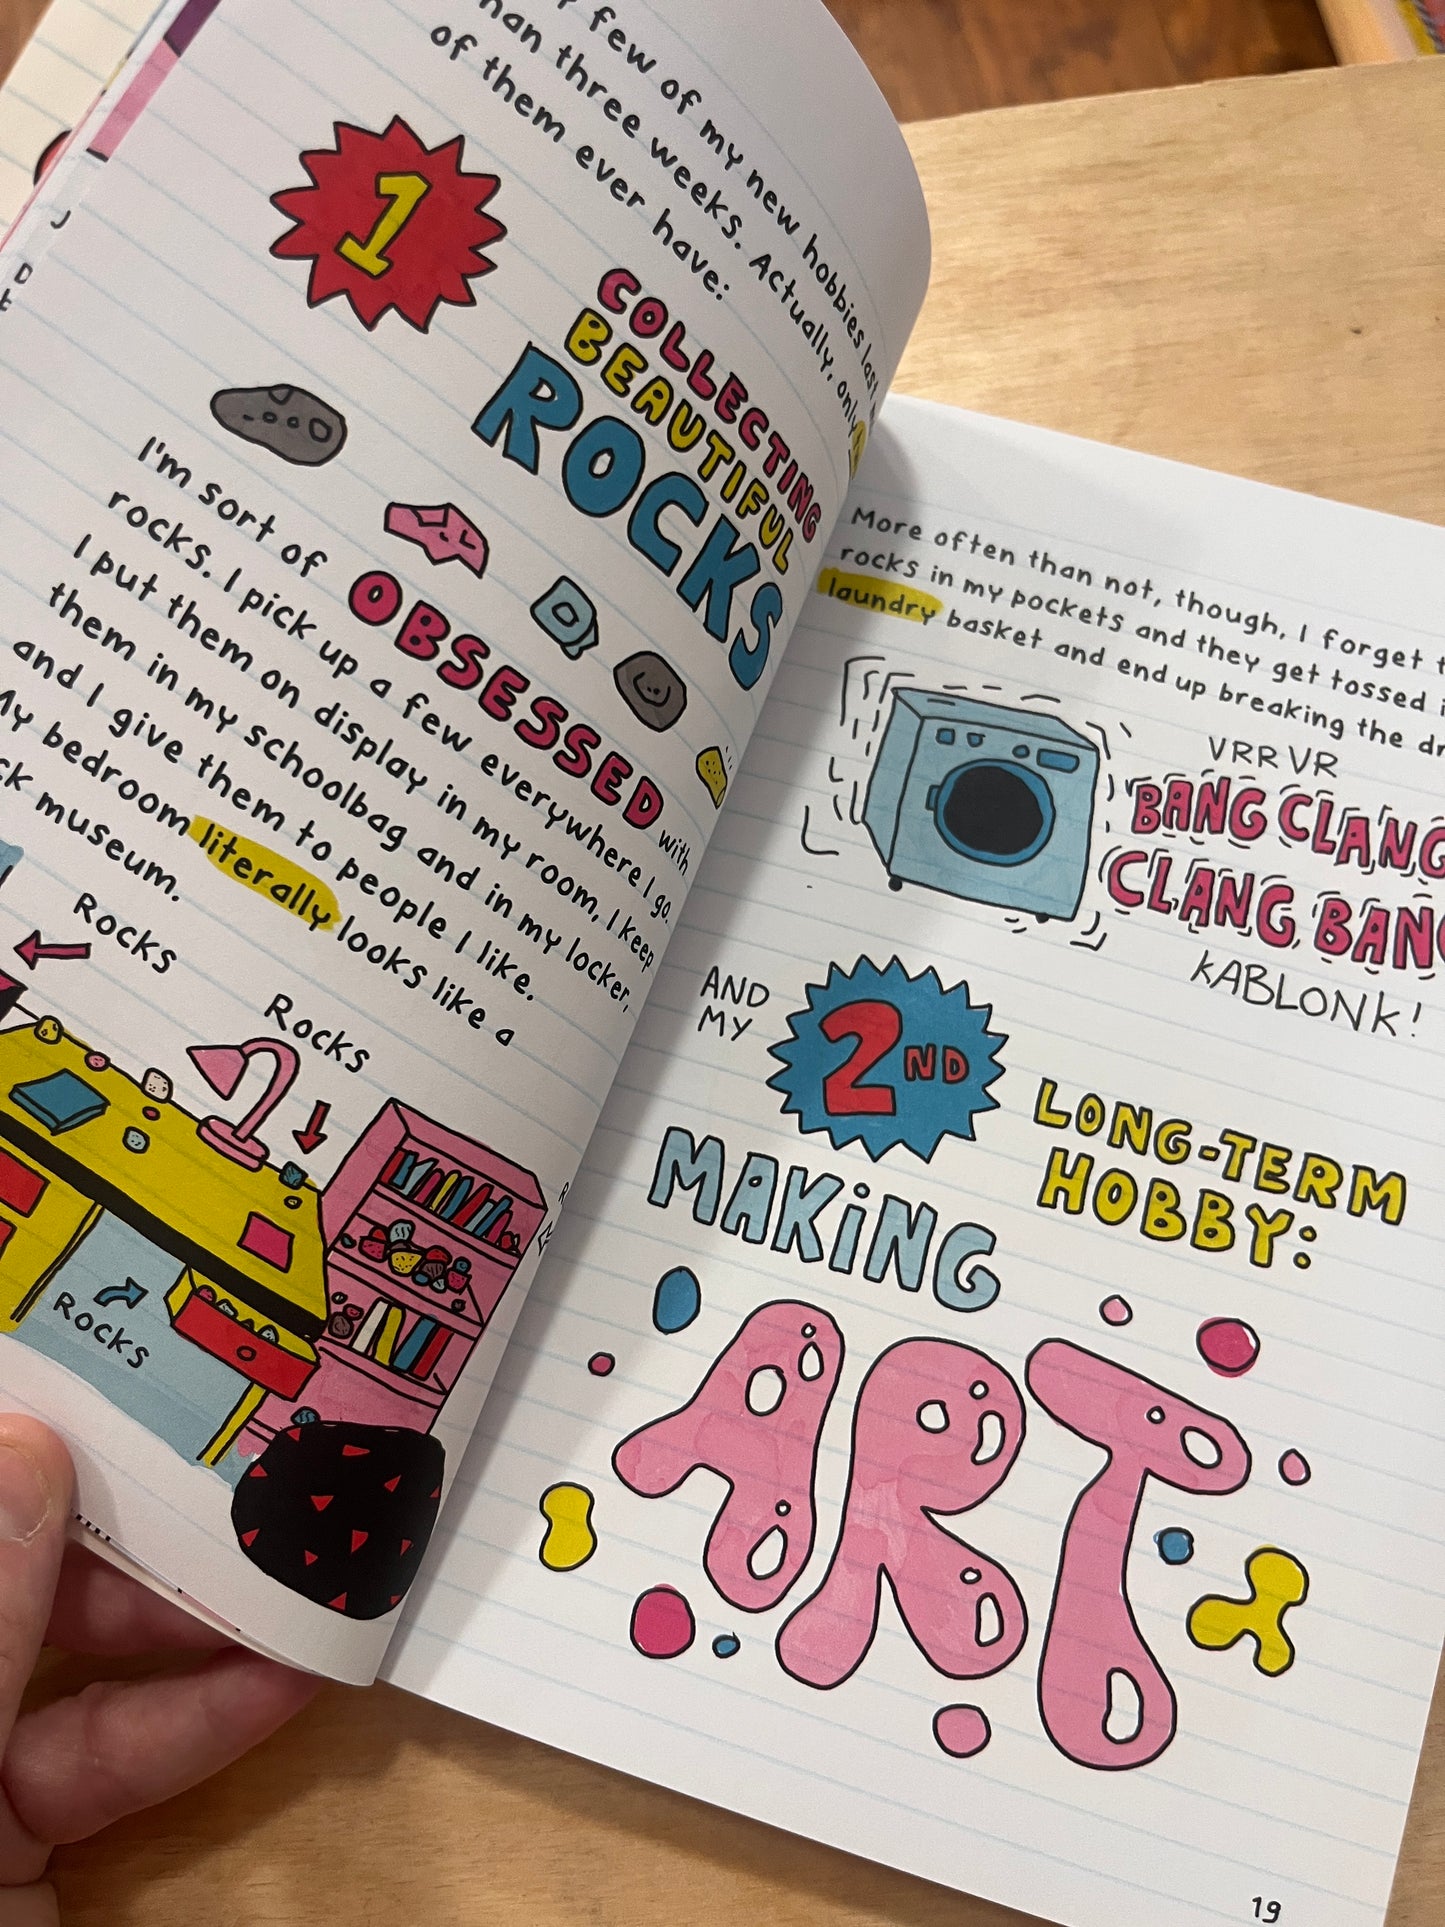 few of my new hobbies last
than three weeks. Actually, only
of them ever have:
1
COLLECTING
BEAUTIFUL
ROCKS
I'm sort of OBSESSED with
rocks. I pick up a few everywhere I go.
I put them on display in my room, I keep
them in my schoolbag and in my locker,
and I give them to people I like.
My bedroom literally looks like a
museum.
ROCKS
ROCKS
ROCKS
More often than not, though, I forget
rocks in my pockets and they get tossed
laundry basket and end up breaking the
VRRVR
BANG CLANG
CLANG BANG
KABLONK!
AND
MY
2ND
LONG-TERM
HOBBY:
MAKiNG
ART
19